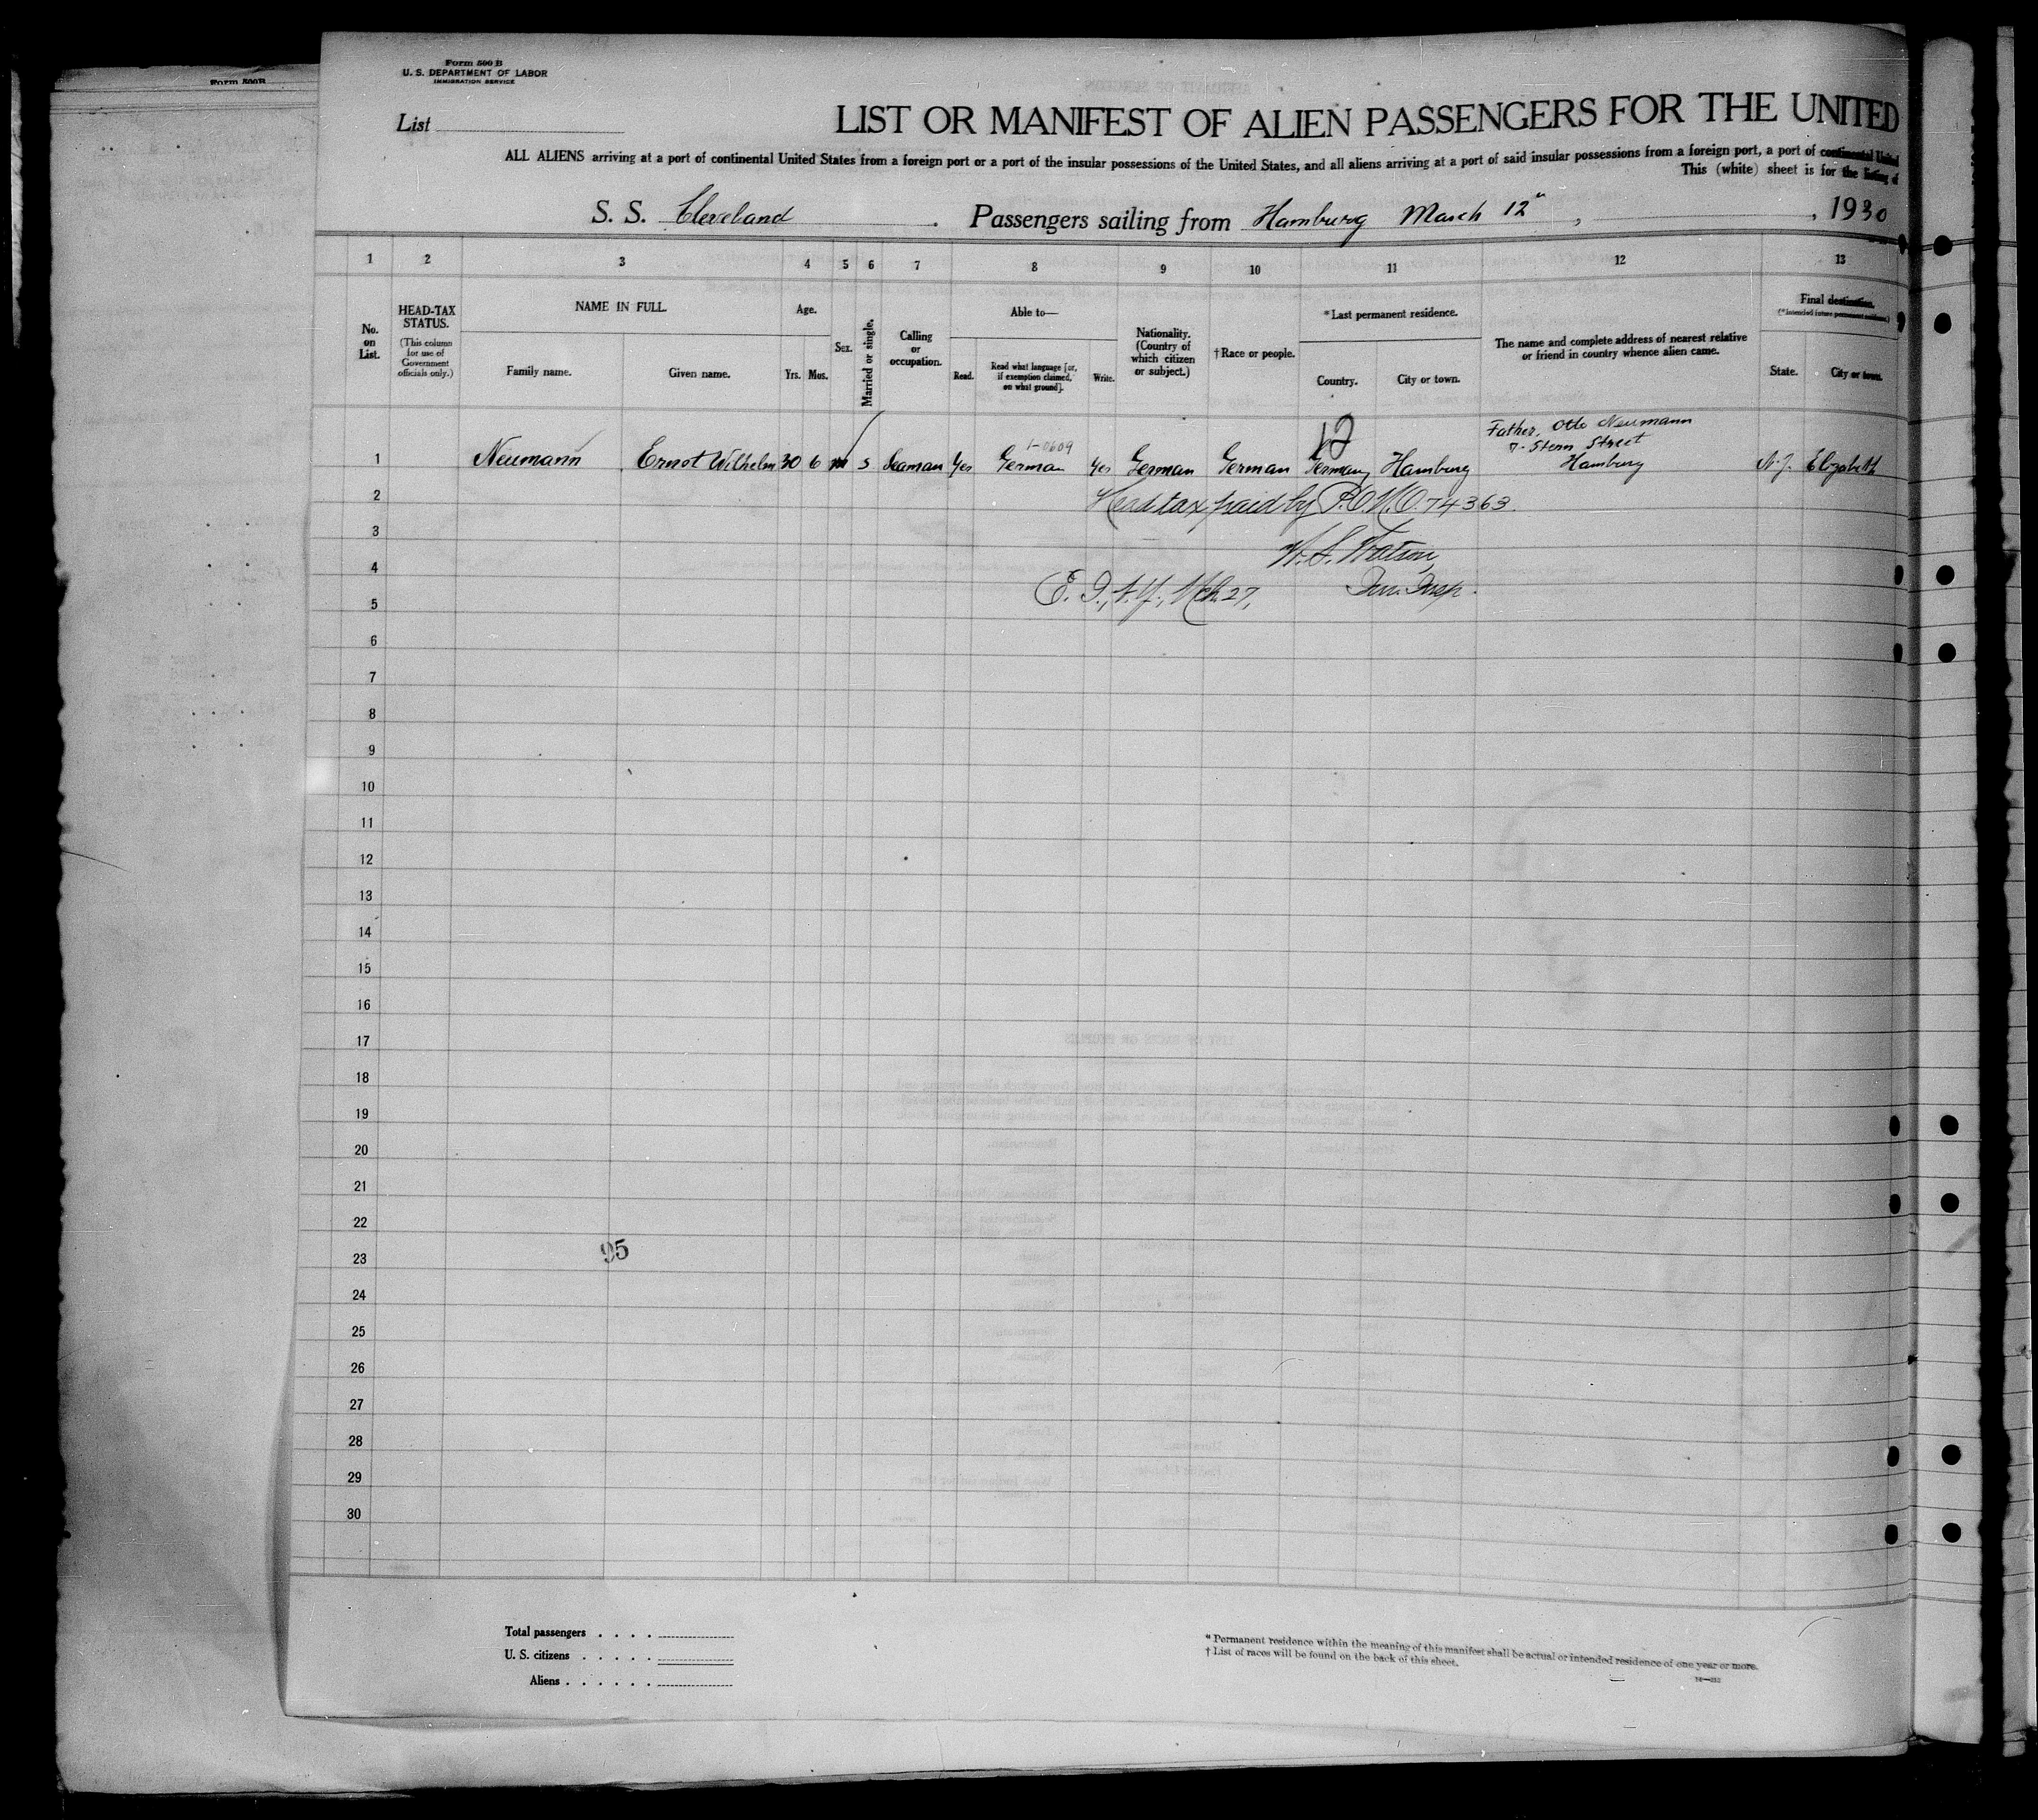 Form 500 B
U. S. DEPARTMENT OF LABOR
IMMIGRATION SERVICE
Form 500B
List
LIST OR MANIFEST OF ALIEN PASSENGERS FOR THE UNITED
ALL ALIENS arriving at a port of continental United States from a foreign port or a port of the insular possessions of the United States, and all aliens arriving at a port of said insular possessions from a foreign port, a port of continental United
This (white) sheet is for the listing of
S. S. Cleveland. Passengers sailing from Hamburg March 12", , 1930
1 2 3 4 5 6 7 8 9 10 11 12 13
No. on List.
HEAD-TAX STATUS.
(This column for use of Government officials only.)
NAME IN FULL.
Family name.
Given name.
Age.
Yrs. Mos.
Sex.
Married or single.
Calling or occupation.
Able to—
Read.
Read what language [or, if exemption claimed, on what ground].
Write.
Nationality. (Country of which citizen or subject.)
†Race or people.
*Last permanent residence.
Country.
City or town.
The name and complete address of nearest relative or friend in country whence alien came.
Final destination.
(*Intended future permanent residence.)
State.
City or town.
12
Father, Otto Neumann
1-0609
7- Stern Street
1 Neumann Ernst Wilhelm 30 6 m s Seaman Yes German Yes German German Germany Hamburg Hamburg N.J. Elizabeth
2 Head tax paid by P.O.M.O. 74363.
3 Watson,
4 Imm. Insp.
5 E. I., N.Y., Mch. 27,
6
7
8
9
10
11
12
13
14
15
16
17
18
19
20
21
22
23 95
24
25
26
27
28
29
30
Total passengers . . . .
U. S. citizens . . . . .
Aliens . . . . . .
* Permanent residence within the meaning of this manifest shall be actual or intended residence of one year or more.
† List of races will be found on the back of this sheet.